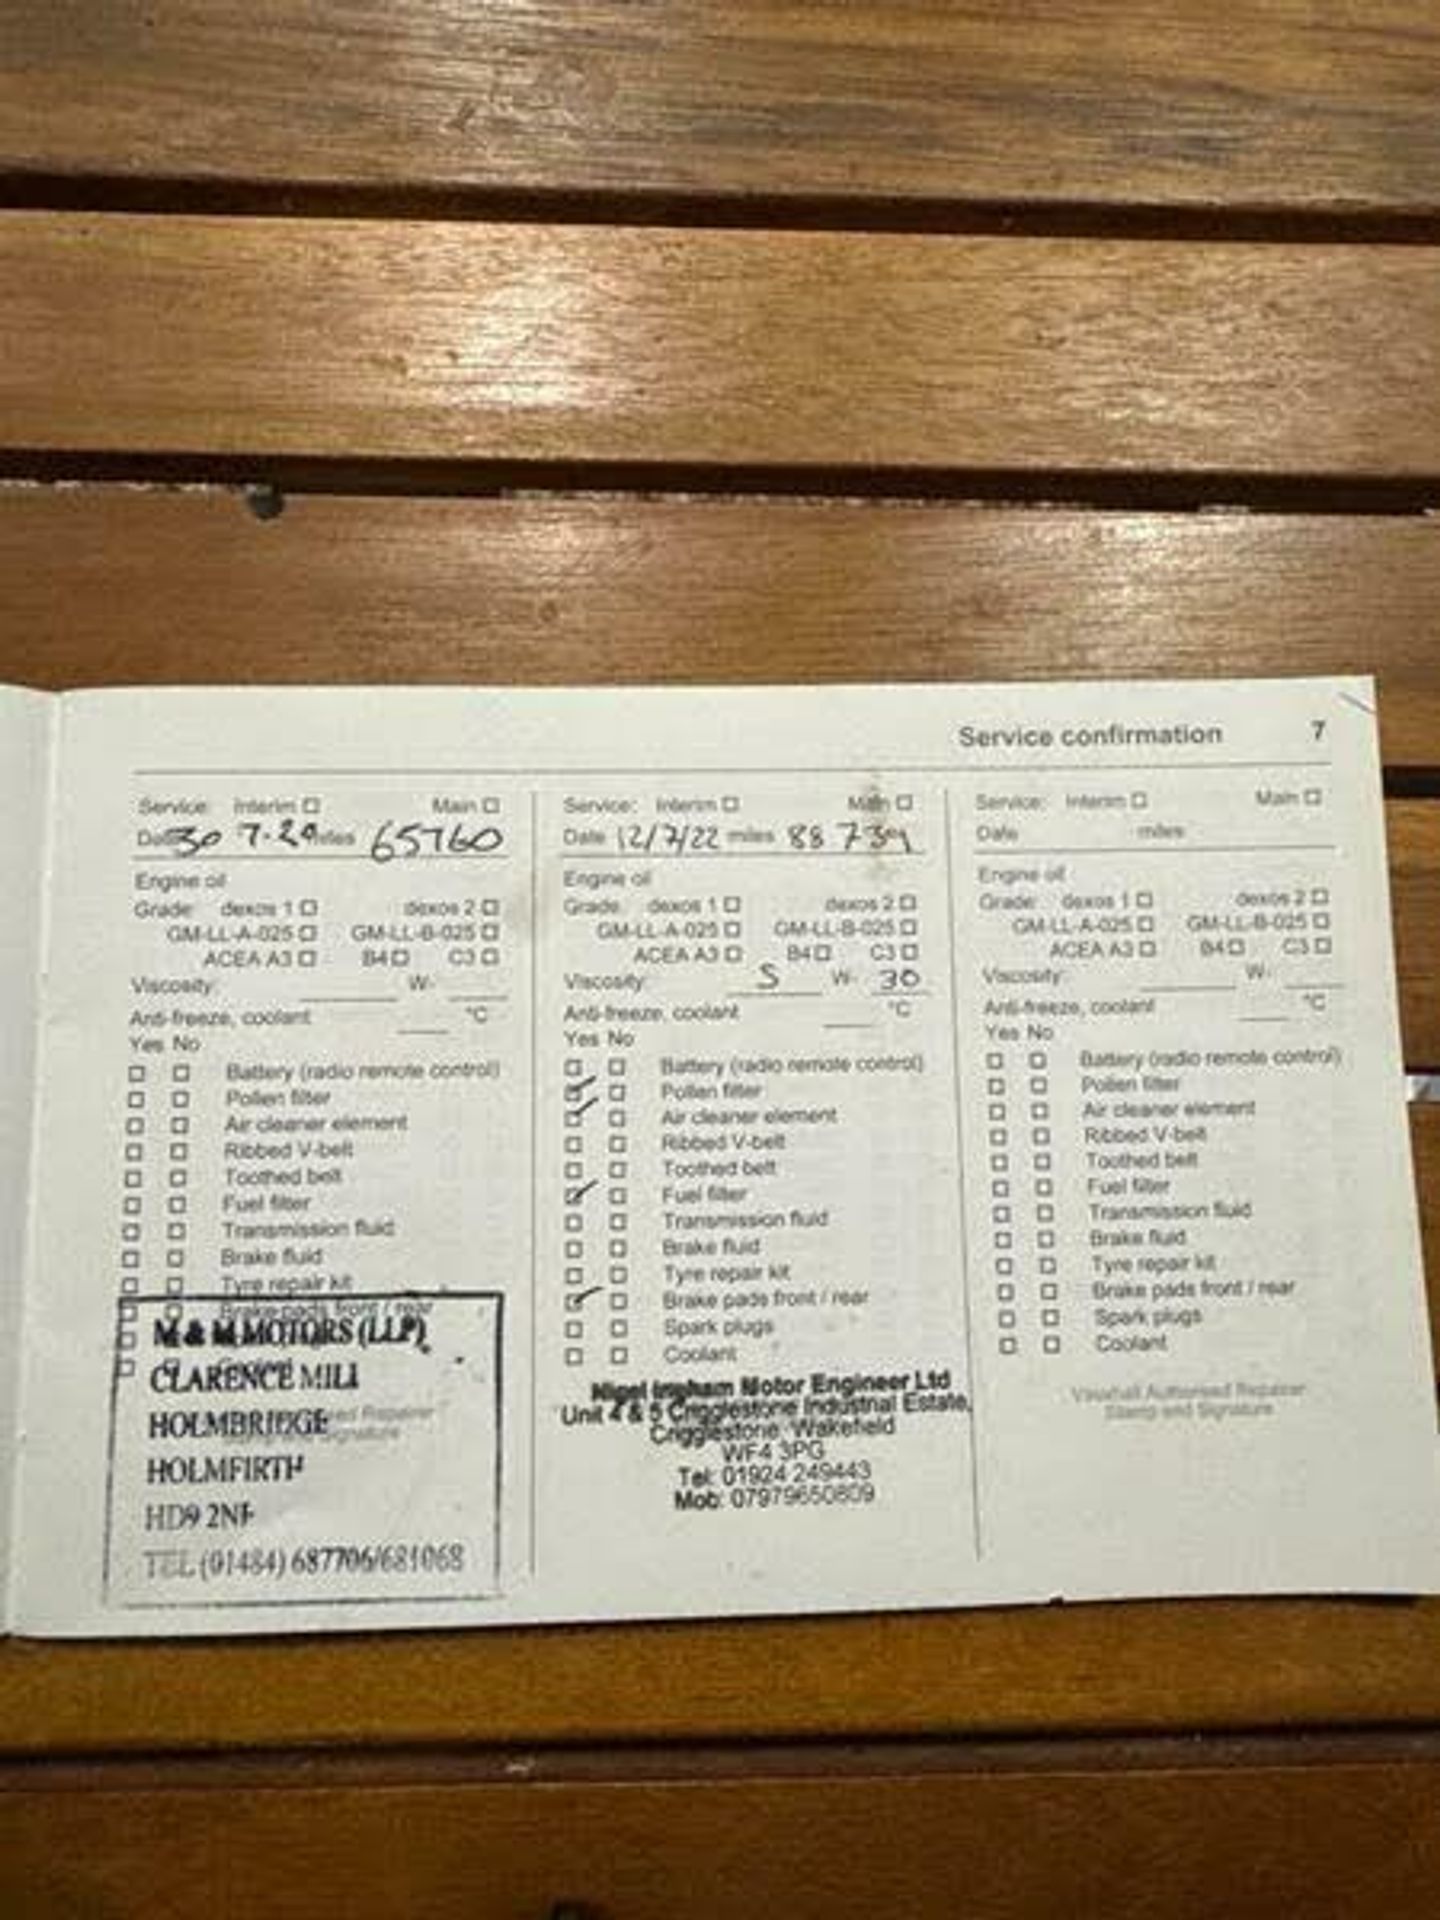 Service confirmation 7
Service: Interim ☐ Main ☐
Date 30 7-20 miles 65760
Engine oil
Grade: dexos 1 ☐ dexos 2 ☐
GM-LL-A-025 ☐ GM-LL-B-025 ☐
ACEA A3 ☐ B4 ☐ C3 ☐
Viscosity: ____ W- ____
Anti-freeze, coolant ____ °C
Yes No
☐ ☐ Battery (radio remote control)
☐ ☐ Pollen filter
☐ ☐ Air cleaner element
☐ ☐ Ribbed V-belt
☐ ☐ Toothed belt
☐ ☐ Fuel filter
☐ ☐ Transmission fluid
☐ ☐ Brake fluid
☐ ☐ Tyre repair kit
☐ ☐ Brake pads front / rear
M & M MOTORS (LLP)
CLARENCE MILL
HOLMBRIDGE
HOLMFIRTH
HD9 2NF
TEL (01484) 687706/681068
Service: Interim ☐ Main ☐
Date 12/7/22 miles 88 739
Engine oil
Grade: dexos 1 ☐ dexos 2 ☐
GM-LL-A-025 ☐ GM-LL-B-025 ☐
ACEA A3 ☐ B4 ☐ C3 ☐
Viscosity: 5 W- 30
Anti-freeze, coolant ____ °C
Yes No
☐ ☐ Battery (radio remote control)
☑ ☐ Pollen filter
☑ ☐ Air cleaner element
☐ ☐ Ribbed V-belt
☐ ☐ Toothed belt
☑ ☐ Fuel filter
☐ ☐ Transmission fluid
☐ ☐ Brake fluid
☐ ☐ Tyre repair kit
☑ ☐ Brake pads front / rear
☐ ☐ Spark plugs
☐ ☐ Coolant
Nigel Ingham Motor Engineer Ltd
Unit 4 & 5 Crigglestone Industrial Estate,
Crigglestone, Wakefield
WF4 3PG
Tel: 01924 249443
Mob: 07979650809
Service: Interim ☐ Main ☐
Date miles
Engine oil
Grade: dexos 1 ☐ dexos 2 ☐
GM-LL-A-025 ☐ GM-LL-B-025 ☐
ACEA A3 ☐ B4 ☐ C3 ☐
Viscosity: ____ W- ____
Anti-freeze, coolant ____ °C
Yes No
☐ ☐ Battery (radio remote control)
☐ ☐ Pollen filter
☐ ☐ Air cleaner element
☐ ☐ Ribbed V-belt
☐ ☐ Toothed belt
☐ ☐ Fuel filter
☐ ☐ Transmission fluid
☐ ☐ Brake fluid
☐ ☐ Tyre repair kit
☐ ☐ Brake pads front / rear
☐ ☐ Spark plugs
☐ ☐ Coolant
Vauxhall Authorised Repairer
Stamp and Signature